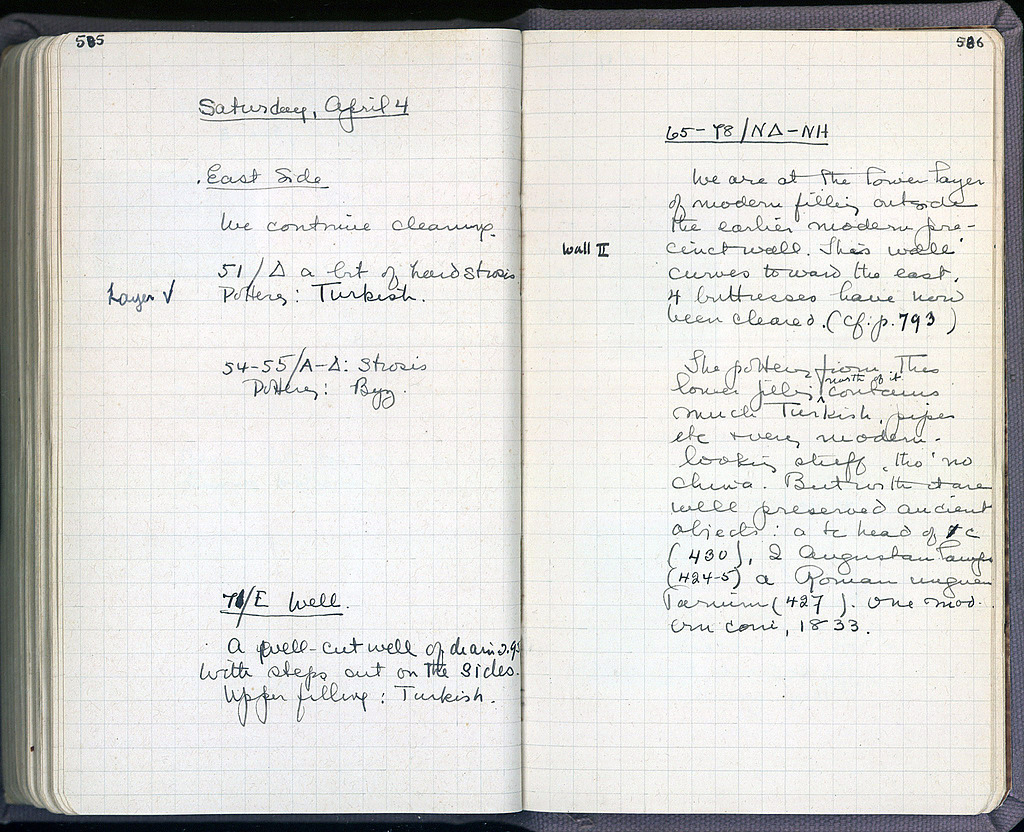 585
Saturday, April 4
East Side
We continue cleaning.
51/Δ a bit of hard strosis
Layer V
Pottery: Turkish.
54-55/A-Δ: Strosis
Pottery: Byz.
71/E Well.
A well-cut well of diam 0.95
with steps cut on the sides.
Upper filling: Turkish.
586
65-78/NΔ-NH
We are at the lower layer
of modern filling outside
the earlier modern pre-
Wall II
cinct wall. This wall
curves toward the east.
4 buttresses have now
been cleared. (cf. p. 793)
The pottery from this
lower filling north of it contains
much Turkish, pipes
etc & very modern-
looking stuff, tho' no
china. But with it are
well preserved ancient
objects: a tc head of
(430), 2 Augustan lamps
(424-5) a Roman unguen
tarium (427). One mod-
ern coin, 1833.